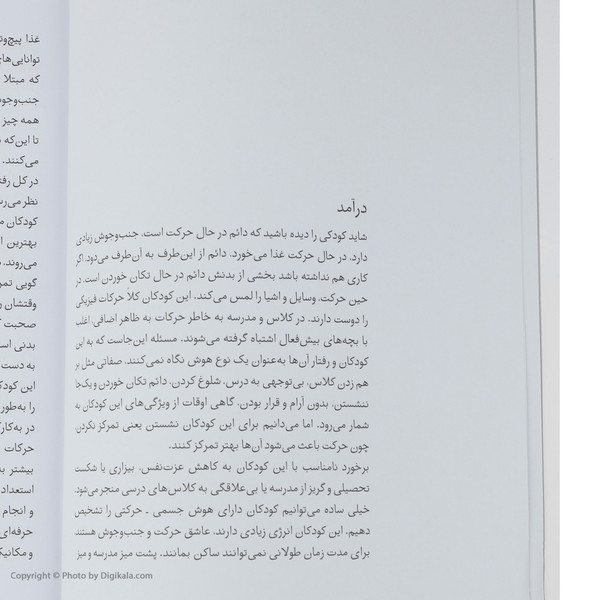 درآمد
شاید کودکی را دیده باشید که دائم در حال حرکت است. جنب‌وجوش زیادی
دارد. در حال حرکت غذا می‌خورد. دائم از این‌طرف به آن‌طرف می‌دود. اگر
کاری هم نداشته باشد بخشی از بدنش دائم در حال تکان خوردن است. در
حین حرکت، وسایل و اشیا را لمس می‌کند. این کودکان کلاً حرکات فیزیکی
را دوست دارند. در کلاس و مدرسه به خاطر حرکات به ظاهر اضافی، اغلب
با بچه‌های بیش‌فعال اشتباه گرفته می‌شوند. مسئله این‌جاست که به این
کودکان و رفتار آن‌ها به‌عنوان یک نوع هوش نگاه نمی‌کنند. صفاتی مثل بر
هم زدن کلاس، بی‌توجهی به درس، شلوغ کردن، دائم تکان خوردن و یک‌جا
ننشستن، بدون آرام و قرار بودن، گاهی اوقات از ویژگی‌های این کودکان به
شمار می‌رود. اما می‌دانیم برای این کودکان نشستن یعنی تمرکز نکردن،
چون حرکت باعث می‌شود آن‌ها بهتر تمرکز کنند.
برخورد نامناسب با این کودکان به کاهش عزت‌نفس، بیزاری یا شکست
تحصیلی و گریز از مدرسه یا بی‌علاقگی به کلاس‌های درسی منجر می‌شود.
خیلی ساده می‌توانیم کودکان دارای هوش جسمی ـ حرکتی را تشخیص
دهیم. این کودکان انرژی زیادی دارند. عاشق حرکت و جنب‌وجوش هستند.
برای مدت زمان طولانی نمی‌توانند ساکن بمانند. پشت میز مدرسه و میز
غذا
توانایی‌های
که مبتلا
همه چیز
تا این‌که
می‌کنند.
در کل
کودکان
بهترین
می‌روند.
گویی
وقتشان
صحبت
بدنی
به دست
این
را به‌طور
حرکات
بیشتر
استعداد
و انجام
حرفه‌ای
Copyright © Photo by Digikala.com